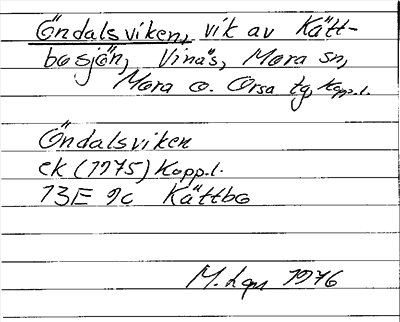 Öndalsviken, vik av Kätt-
bosjön, Vinäs, Mora sn,
Mora o. Orsa tg, Kopp.l.
Öndalsviken
ek (1975) Kopp.l.
13E 9c Kättbo
M. Lgn 1976